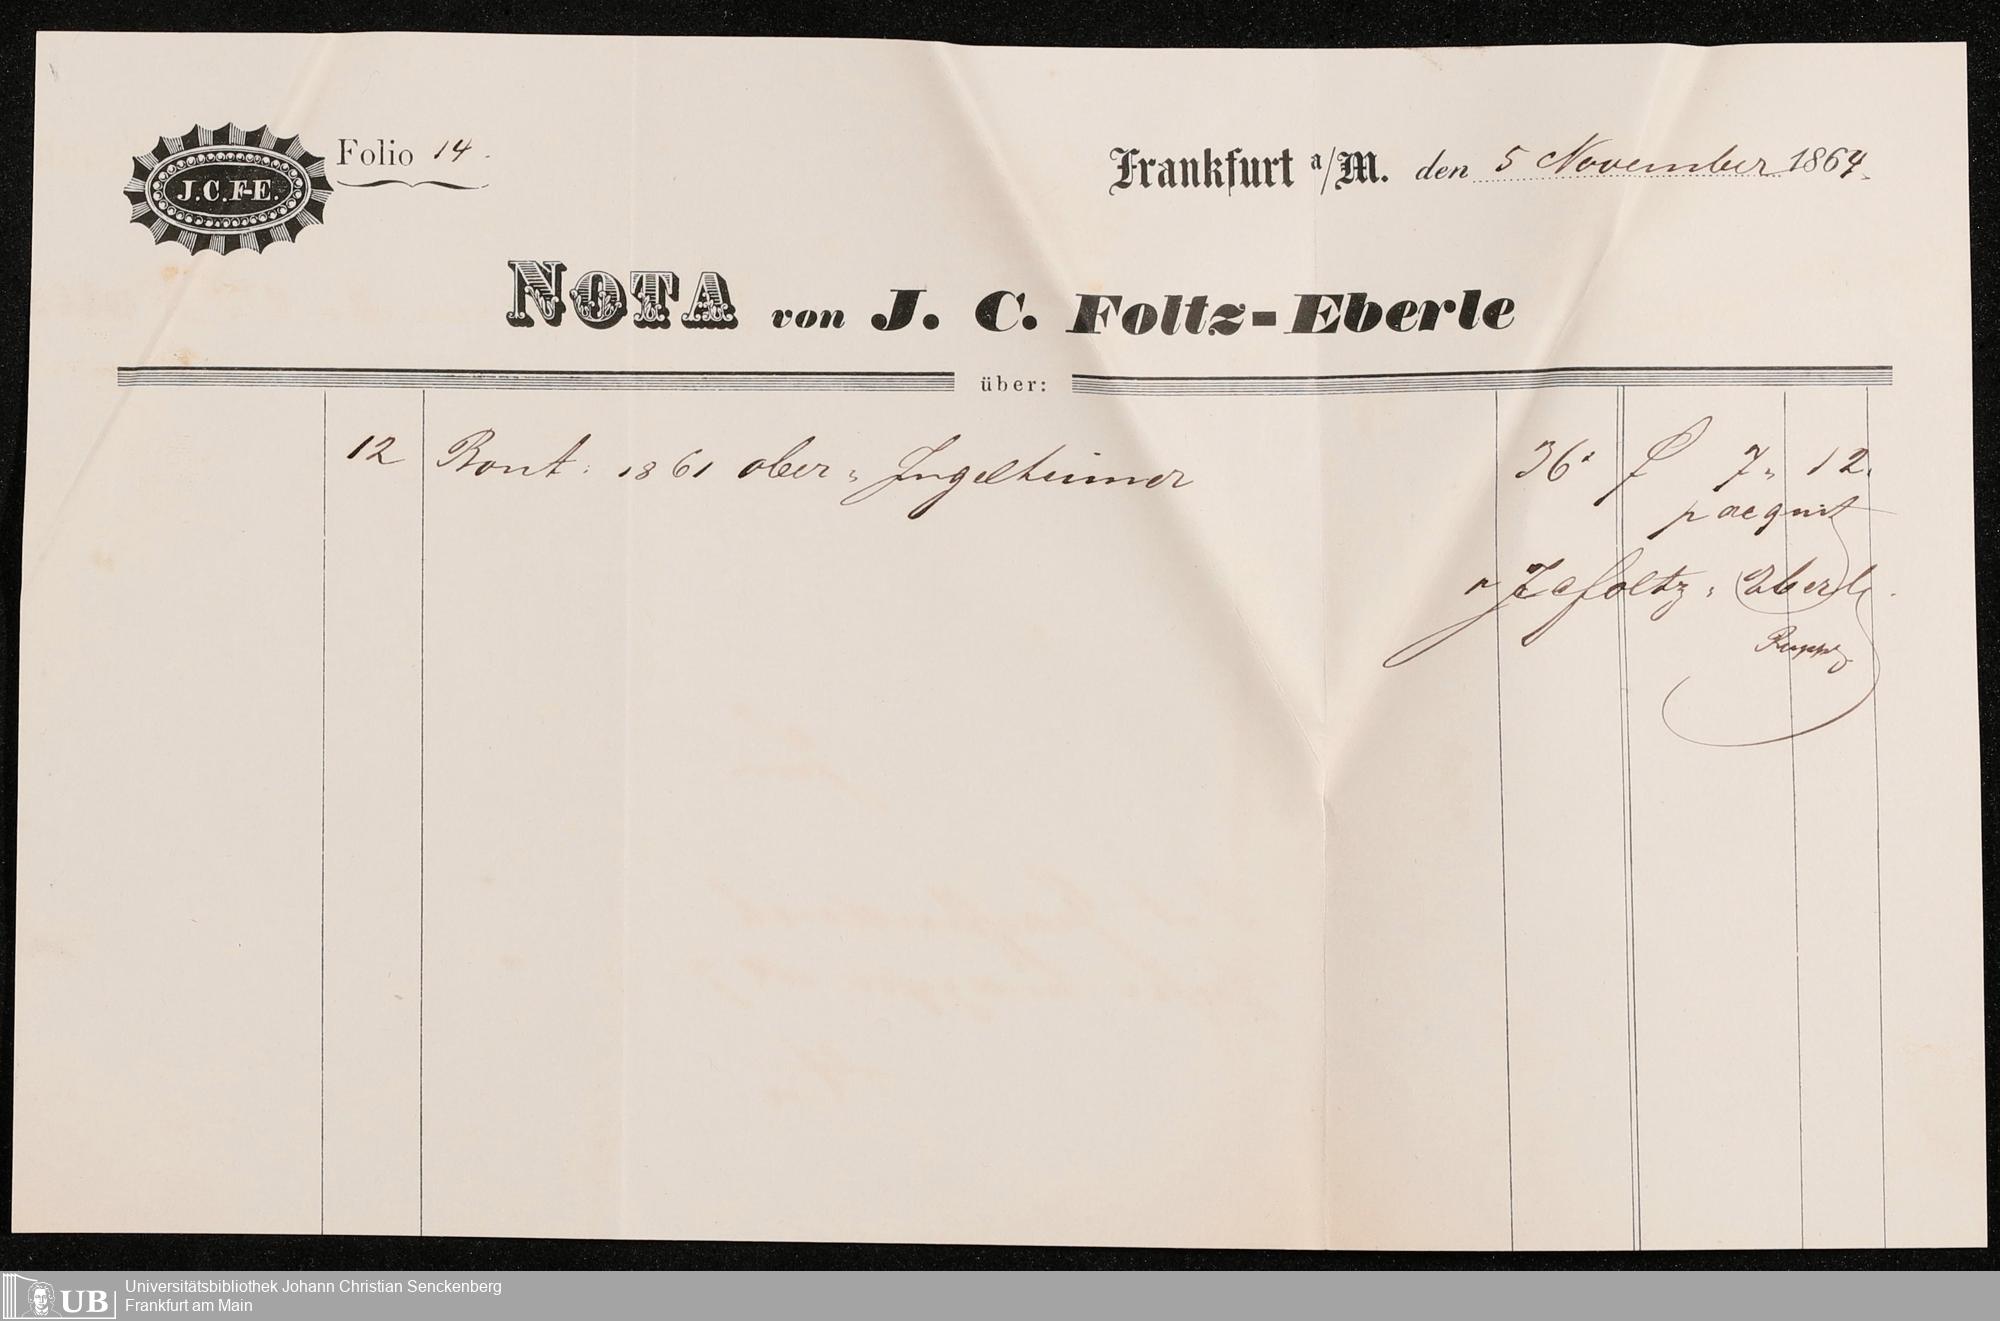 J.C.F-E.
Folio 14.
Frankfurt a/M. den 5 November 1864.
NOTA von J. C. Foltz-Eberle
über:
12 Bout: 1861 ober-Ingelheimer 36 f 7 " 12.
p acquit
p JC Foltz-Eberle.
UB
Universitätsbibliothek Johann Christian Senckenberg
Frankfurt am Main